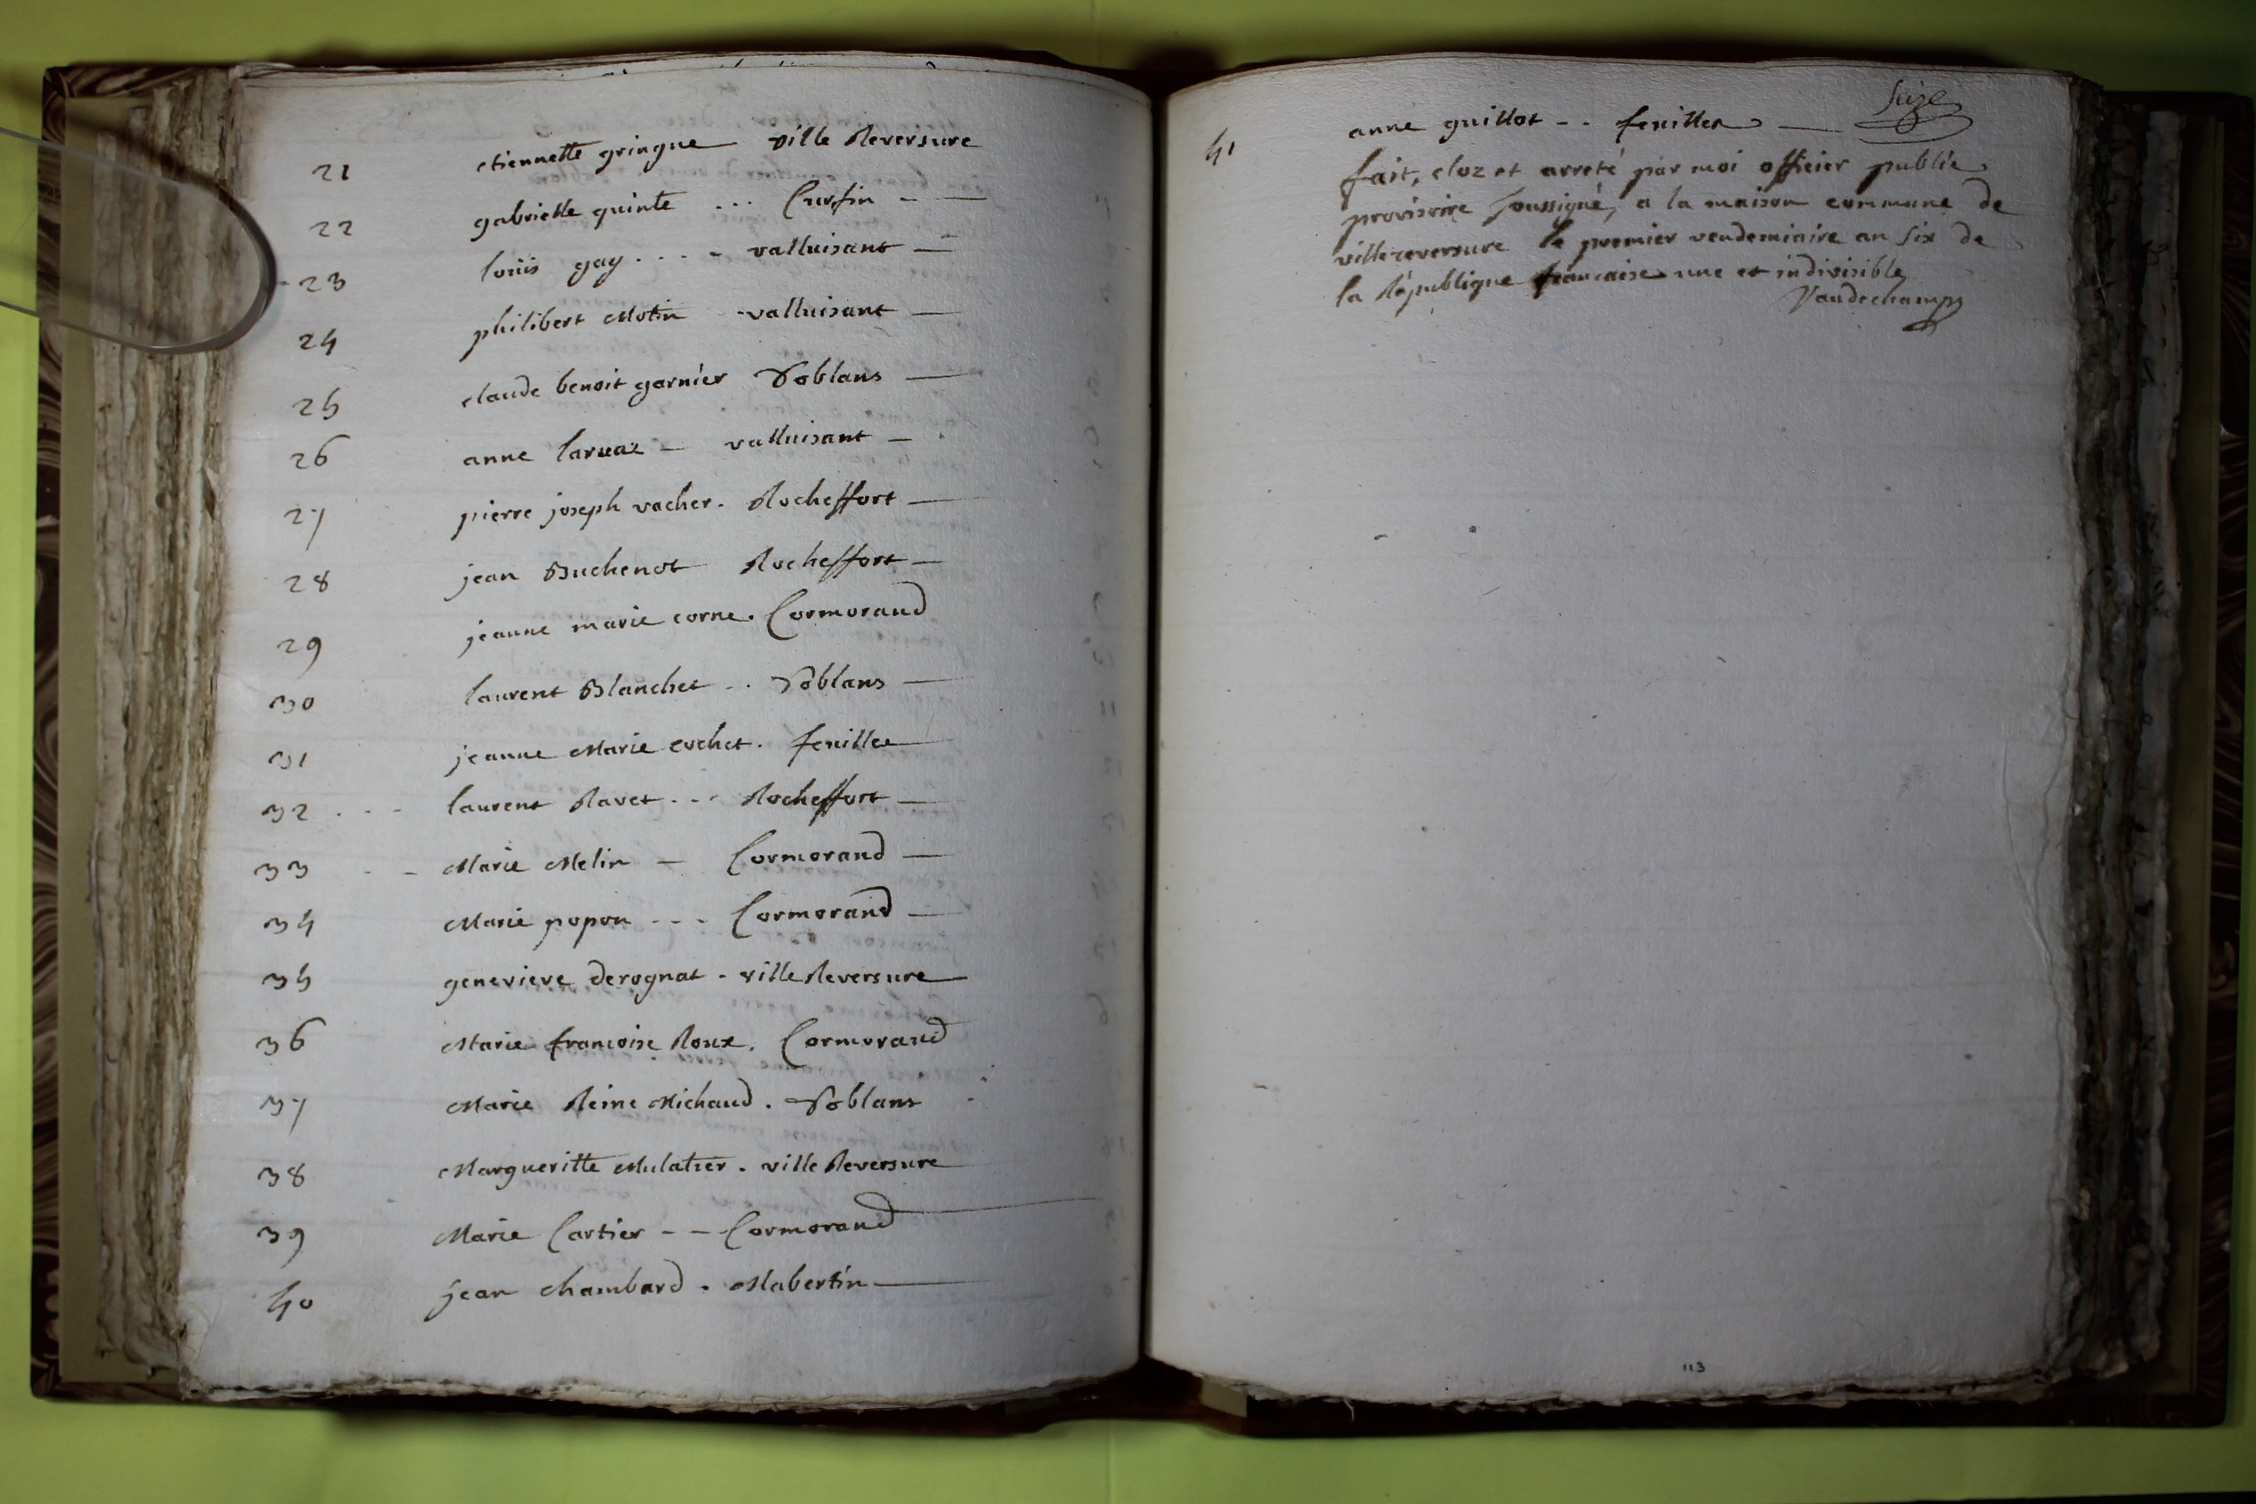 21 etiennette gringue ville Reversure
22 gabrielle quinte ... Curfin - -
23 louis gay . . . - valluisant -
24 philibert Motin - valluisant -
25 claude benoit garnier Soblans -
26 anne laruaz - valluisant -
27 pierre joseph vacher. Rocheffort -
28 jean Buchenot Rocheffort -
29 jeanne marie corne. Cormorand
30 laurent Blanchet .. Soblans -
31 jeanne Marie cochet. feuillee
32 . - - laurent Ravet - - - Rocheffort -
33 - - Marie Melin - Cormorand -
34 Marie popon - - - Cormorand -
35 genevieve derognat - ville Reversure
36 Marie francoise Roux. Cormorand
37 Marie Reine Michaud. Soblans -
38 Margueritte Mulatier. ville Reversure
39 Marie Cartier - - Cormorand
40 jean chambard. Mabertin
Seize
41 anne guillot - - feuillee -
fait, cloz et arreté par moi officier public
provisoire soussigné, a la maison commune de
villereversure le premier vendemiaire an six de
la République francaise une et indivisible
Vaudechamp
113